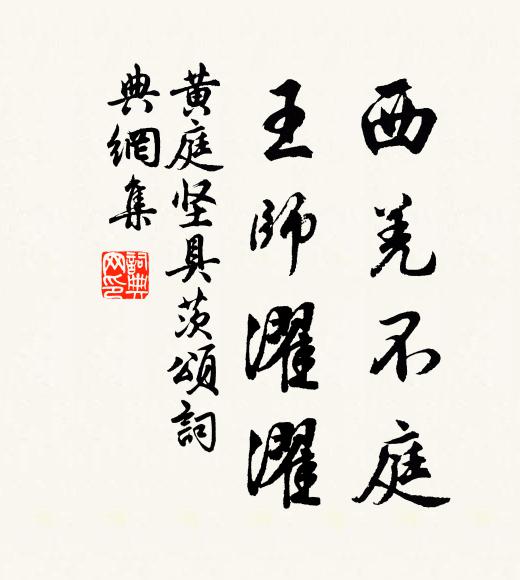 西羌不庭
王師濯濯
黄庭坚具茨頌詞
典網集
詞典网印